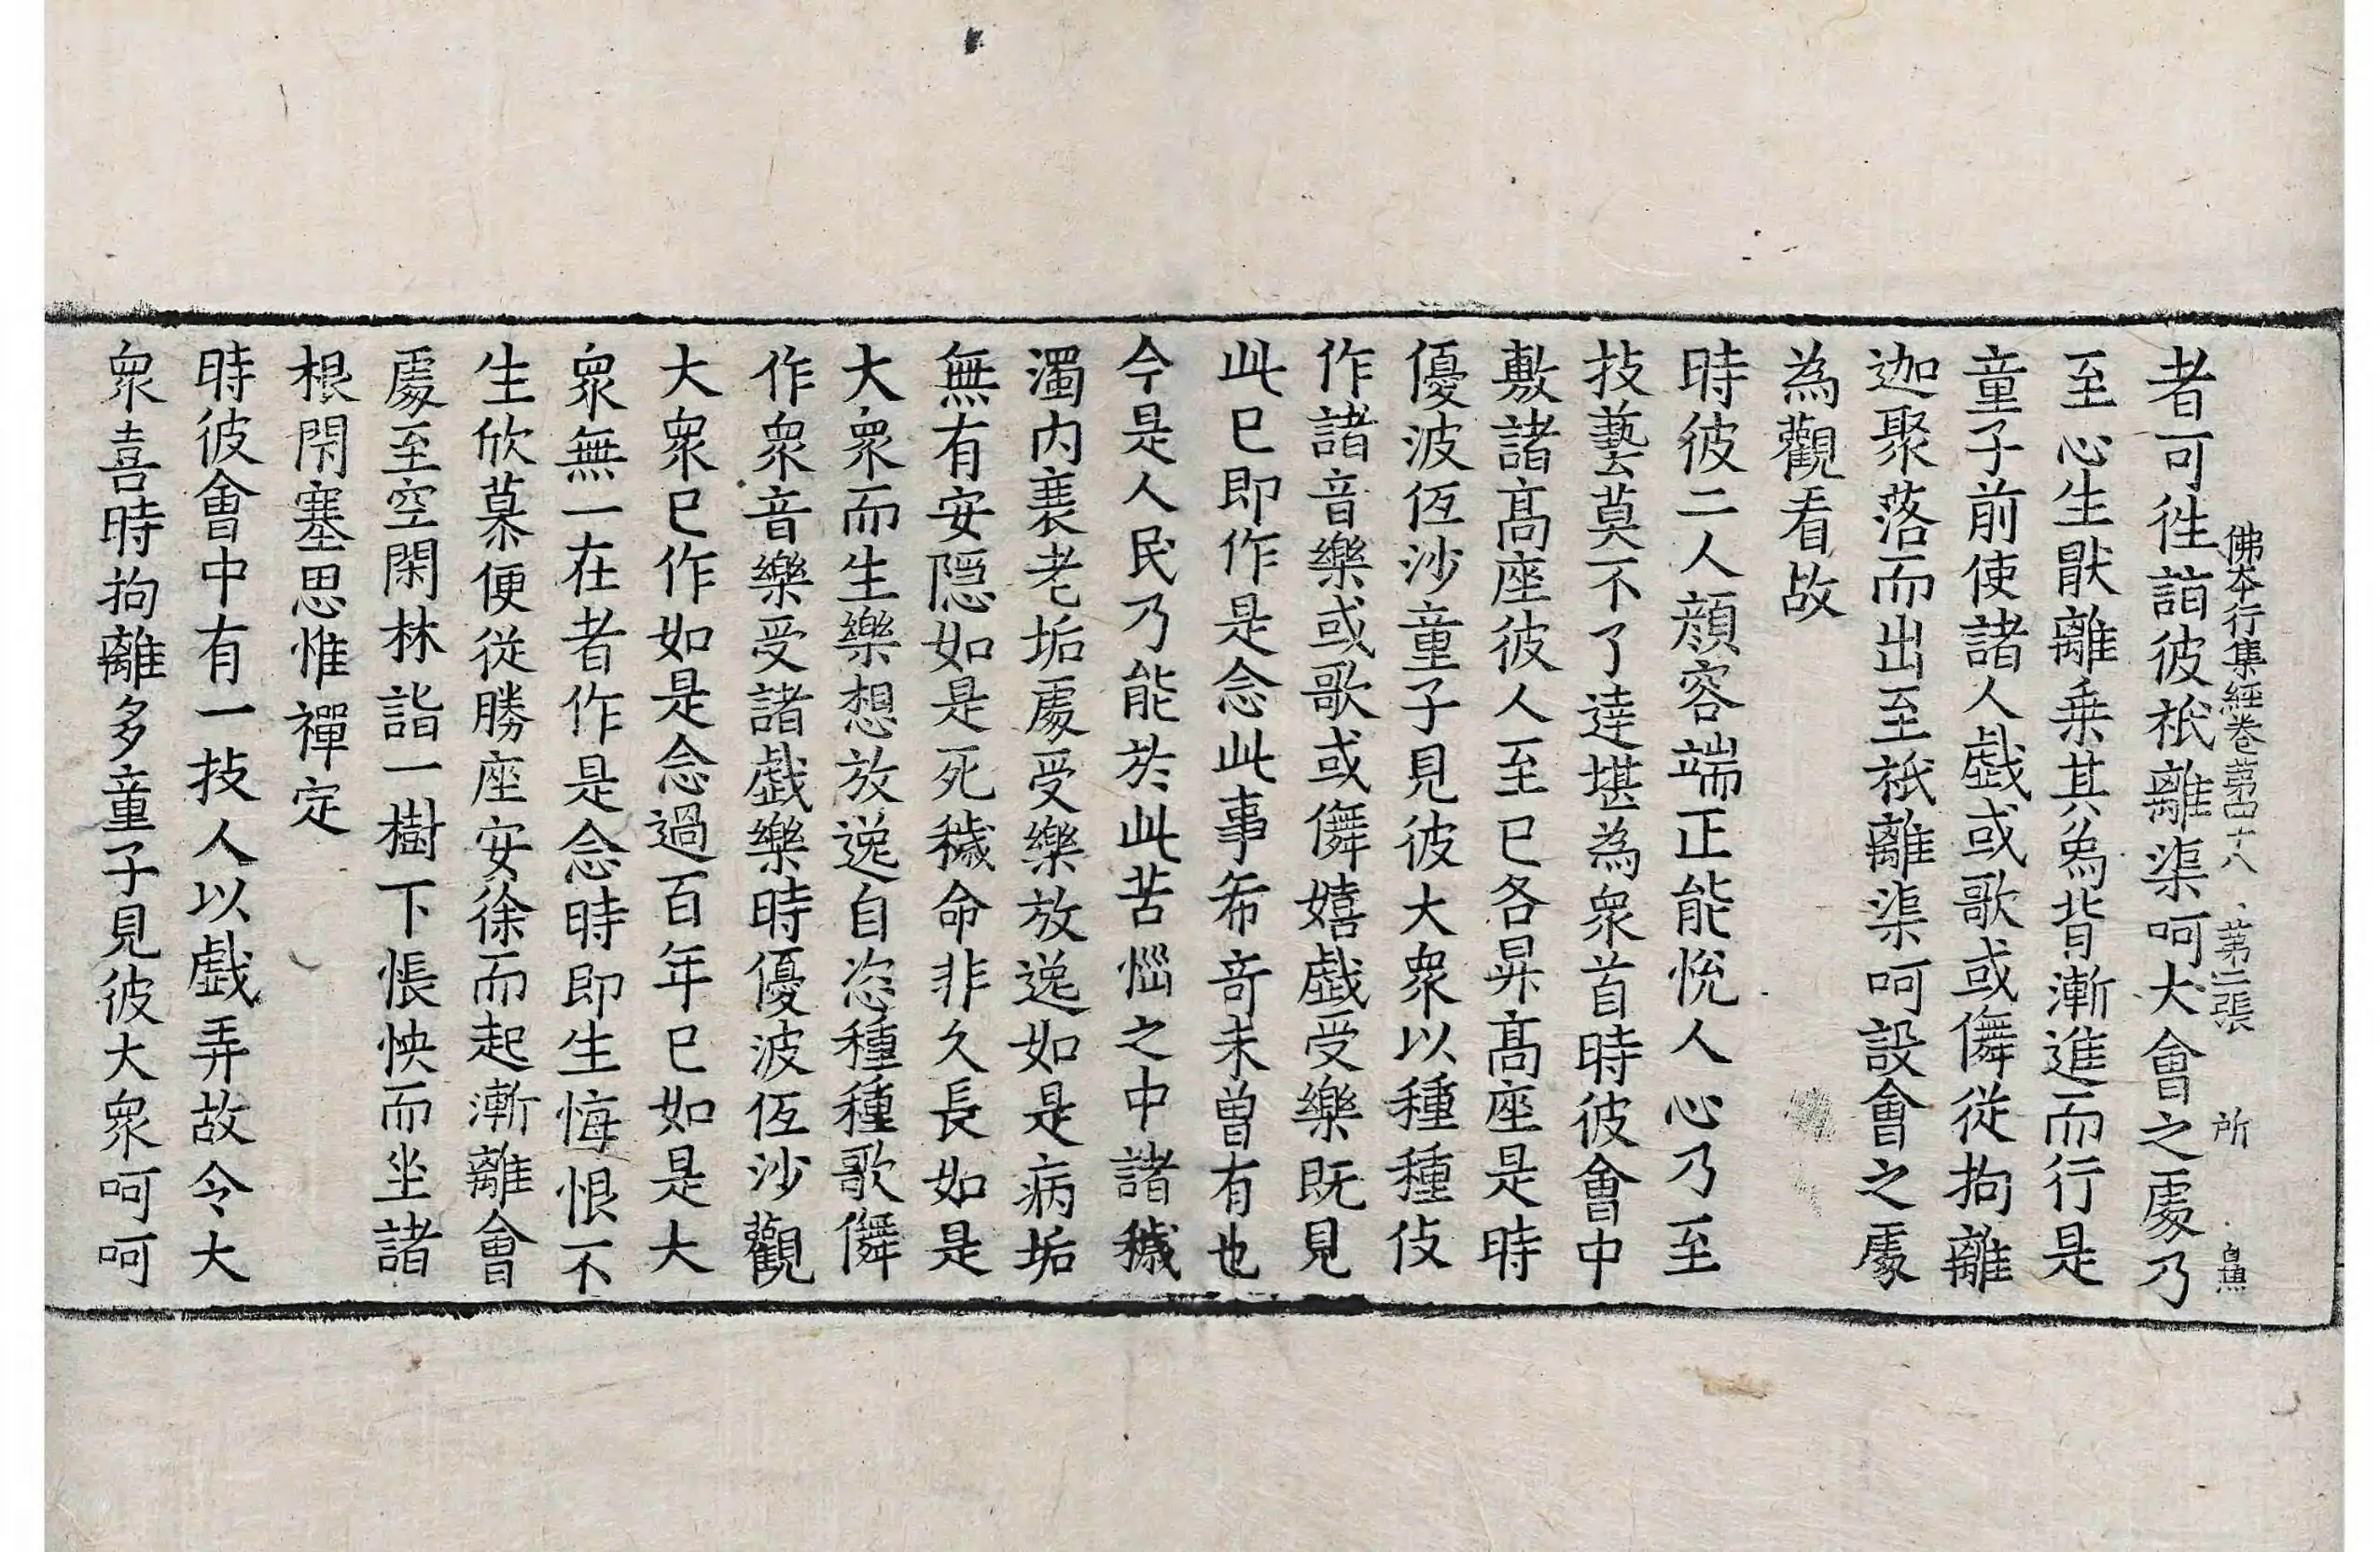 佛本行集經卷第四十八　第二張　所
者可徃詣彼祇離渠呵大會之處乃
至心生猒離乗其象背漸進而行是
童子前使諸人戱或歌或儛從拘離
迦聚落而出至祇離渠呵設會之處
為觀看故
時彼二人顔容端正能恱人心乃至
技藝莫不了達堪為衆首時彼會中
敷諸髙座彼人至已各昇髙座是時
優波低沙童子見彼大衆以種種伎
作諸音樂或歌或儛嬉戱受樂既見
此已即作是念此事希竒未曽有也
今是人民乃能於此苦惱之中諸穢
濁内衰老垢處受樂放逸如是病垢
無有安隠如是死穢命非久長如是
大衆而生樂想放逸自恣種種歌儛
作衆音樂受諸戱樂時優波低沙觀
大衆已作如是念過百年已如是大
衆無一在者作是念時即生悔恨不
生欣慕便從勝座安徐而起漸離會
處至空閑林詣一樹下悵怏而坐諸
根閇塞思惟禪定
時彼會中有一技人以戱弄故令大
衆喜時拘離多童子見彼大衆呵呵